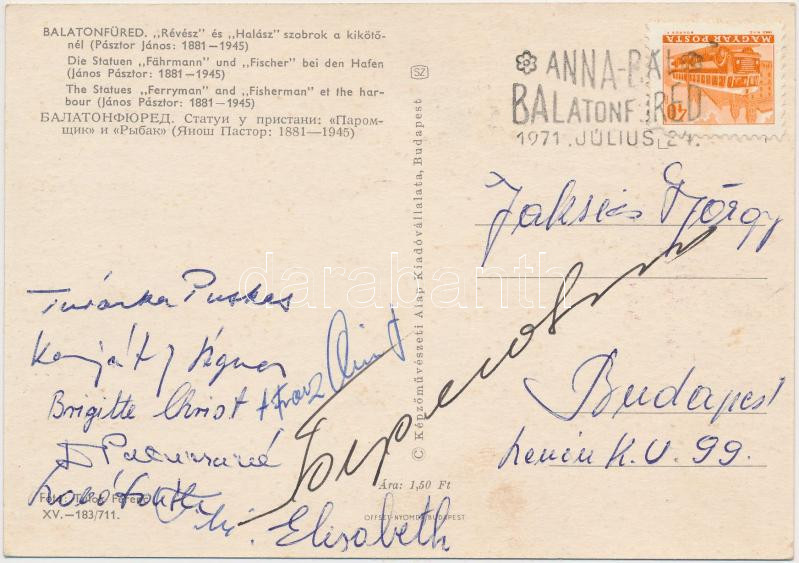 BALATONFÜRED. „Révész" és „Halász" szobrok a kikötő-
nél (Pásztor János: 1881—1945)
Die Statuen „Fährmann" und „Fischer" bei den Hafen
(János Pásztor: 1881—1945)
The Statues „Ferryman" and „Fisherman" et the har-
bour (János Pásztor: 1881—1945)
БАЛАТОНФЮРЕД. Статуи у пристани: «Паром-
щик» и «Рыбак» (Янош Пастор: 1881—1945)
SZ
© Képzőművészeti Alap Kiadóvállalata, Budapest
MAGYAR POSTA
40
ANNA-BÁL
BALATONFÜRED
1971. JÚLIUS 24.
György
Budapest
Lenin K.U. 99.
darabanth
Puskas
Brigitte Christ + Franz Christ
Elisabeth
Ára: 1,50 Ft
Fotó: Tulok Ferenc
XV.—183/711.
OFFSET-NYOMDA BUDAPEST